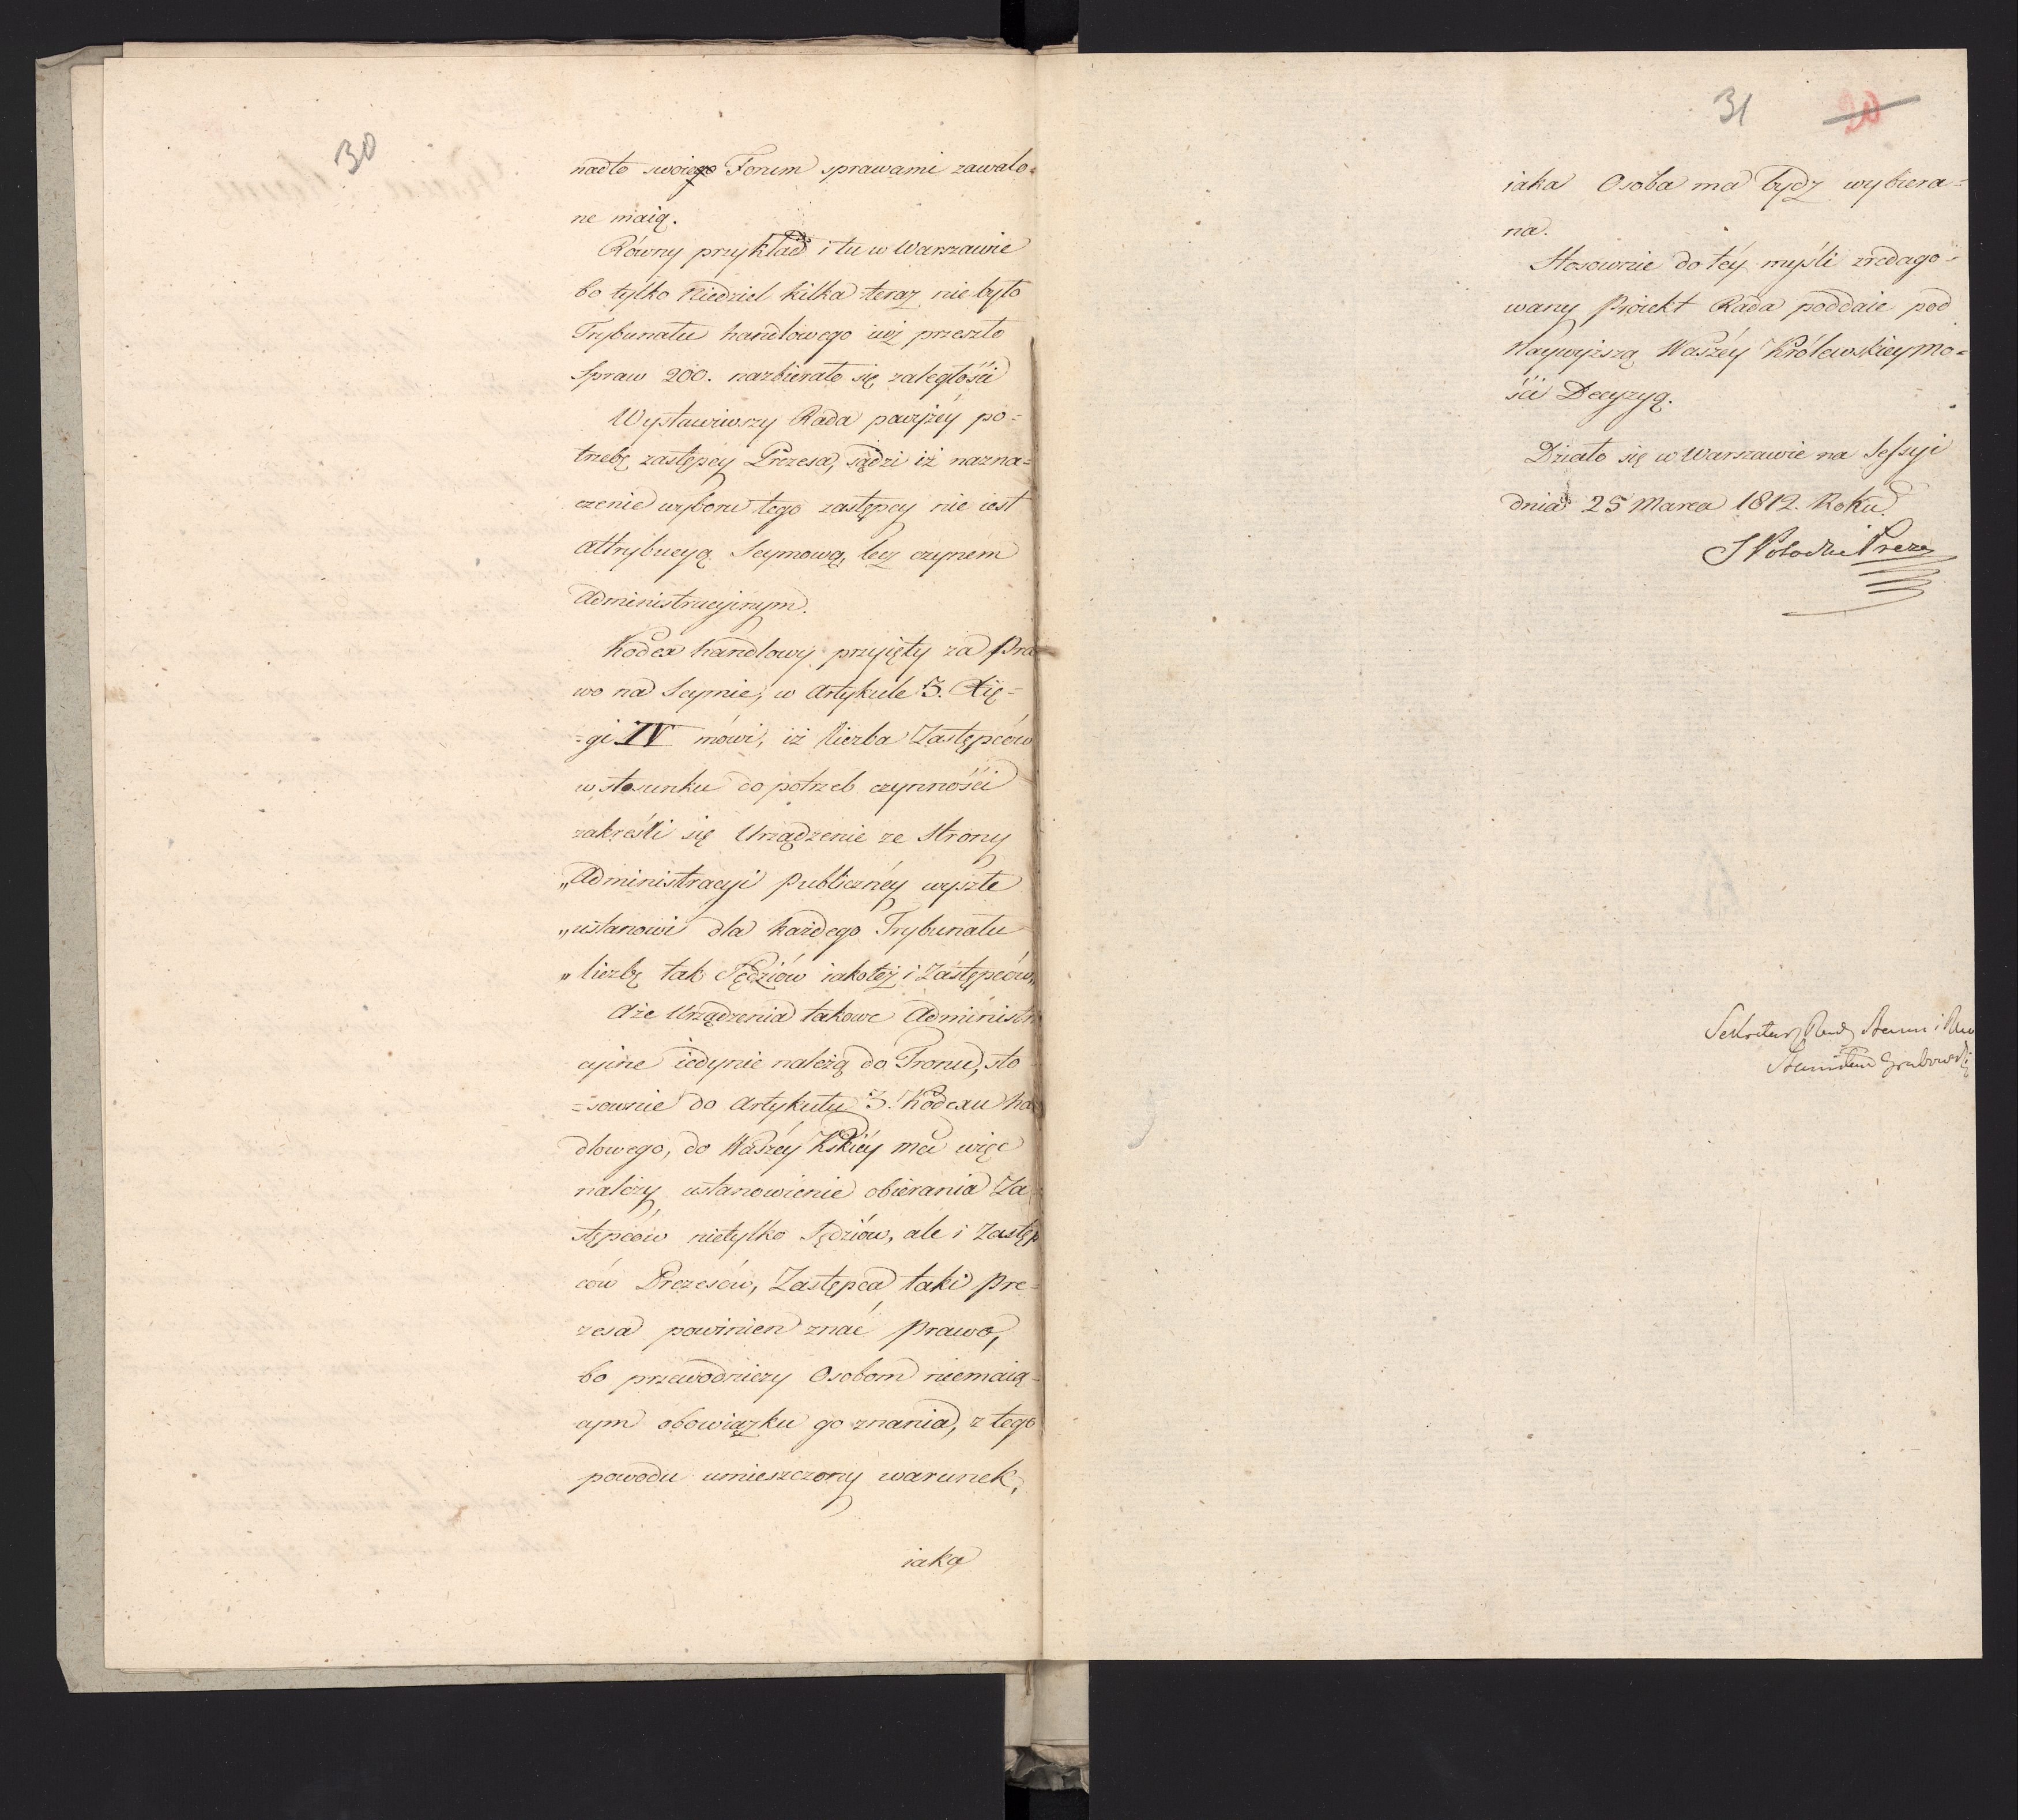 30
nadto swoiego Forum sprawami zawalo=
ne maią.
Równy przykład i tu w Warszawie
bo tylko Niedziel kilka teraz nie było
Trybunału handlowego iuż przeszło
Spraw 200. nazbierało się zaległości
Wystawiwszy Rada powyżéy po=
trzebę zastępcy Prezesa, sądzi iż nazna=
czenie wyboru tego zastępcy nie iest
attrybucyą Seymową, lecz czynem
Administracyinym.
Kodex handlowy przyięty za Pra
wo na Seymie, w Artykule 3. Xię=
=gi IV mówi, iż liczba Zastępców
w stosunku do potrzeb czynności
zakreśli się Urządzenie ze Strony
„Administracyi Publicznéy wyszłe
„ustanowi dla każdego Trybunału
„liczbę tak Sędziów iakotéż i Zastępców„
Aże Urządzenia takowe Administr
cyine iedynie należą do Tronu, sto
=sownie do Artykułu 3. Kodexu ha
dlowego, do Waszéy Kskiéy mci więc
należy ustanowienie obierania Za
stępców nietylko Sędziów, ale i Zastęp
ców Prezesów, Zastępca taki Pre=
zesa powinien znać Prawo,
bo przewodniczy Osobom niemaią=
cym obowiązku go znania, z tego
powodu umieszczony warunek,
iaka
31 20
iaka Osoba ma bydz wybiera=
na.
Stosownie do téy myśli zredago=
wany Proiekt Rada poddaie pod
Naywyższą Waszéy Królewskiey Mo=
ści Decyzyą.
Działo się w Warszawie na Sessyi
dnia 25 Marca 1812. Roku.
S Potocki Preze
Sekretarz Rady Stanu i
Stanisław Grabowski